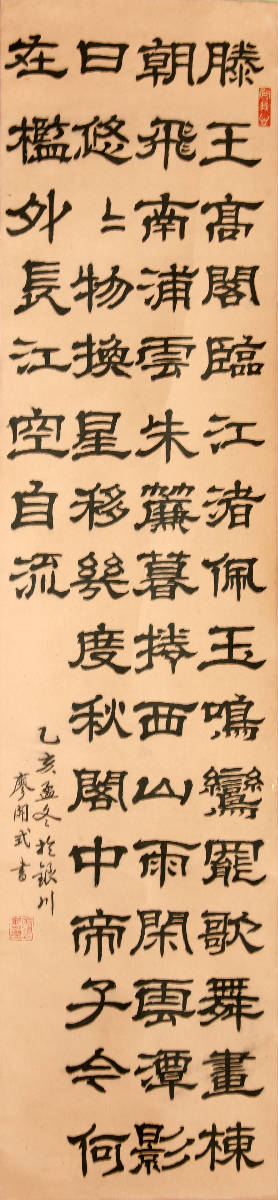 滕王高閣臨江渚佩玉鳴鸞罷歌舞畫棟
朝飛南浦雲朱簾暮捲西山雨閑雲潭影
日悠〻物換星移幾度秋閣中帝子今何
在檻外長江空自流
乙亥孟冬於銀川
廖開武書